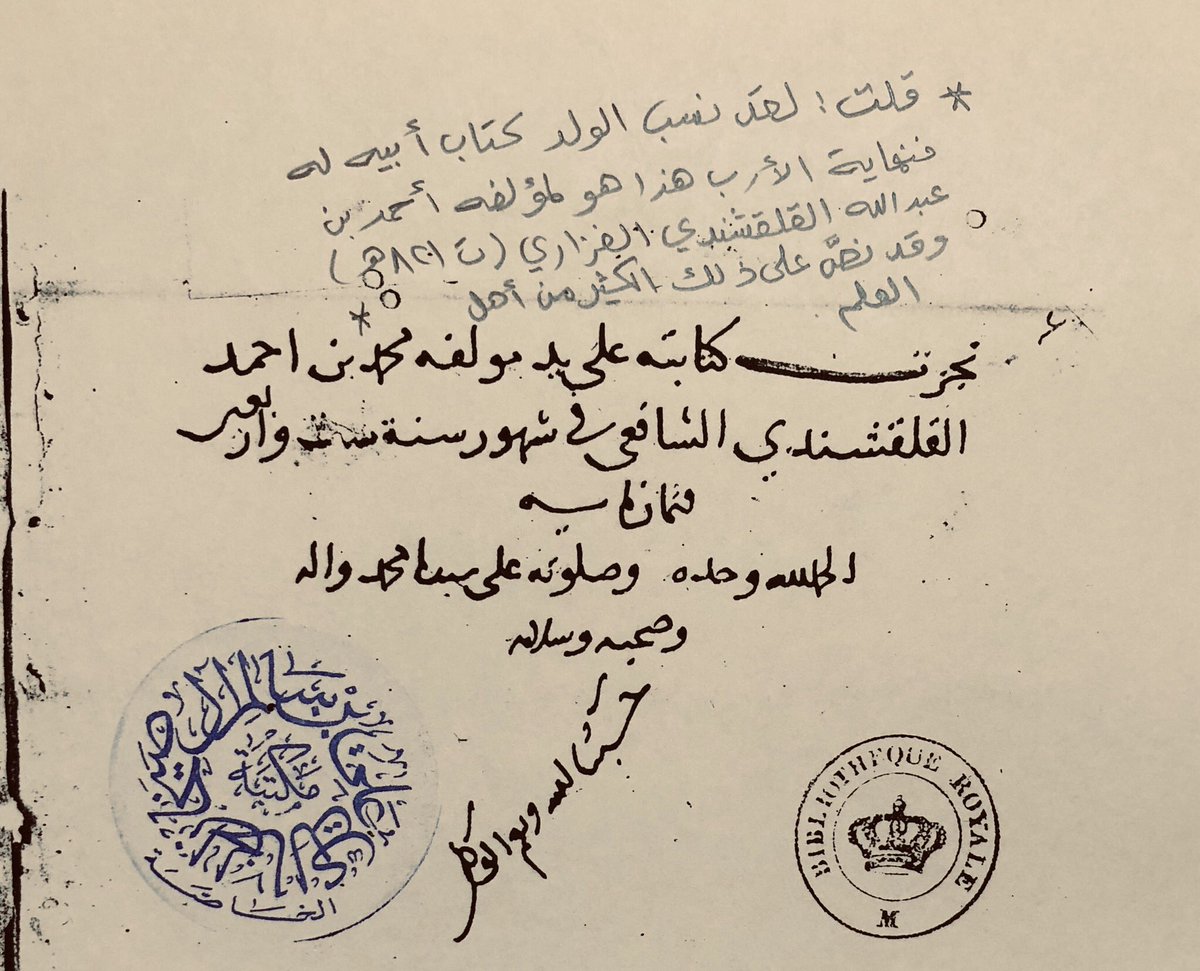 * قلت: لقد نسب الولد كتاب أبيه له
فنهاية الأرب هذا هو لمؤلفه أحمد بن
عبد الله القلقشندي الفزاري (ت ٨٢١هـ)
وقد نصَّ على ذلك الكثير من أهل
العلم
*
نجزت كتابته على يد مولفه محمد بن احمد
القلقشندي الشافعي في شهور سنة ست واربعين
وثمان مايه
الحمد لله وحده وصلوته على سيدنا محمد واله
وصحبه وسلامه
حسبنا الله ونعم الوكيل
مكتبة
الخاصة
BIBLIOTHEQUE ROYALE
M